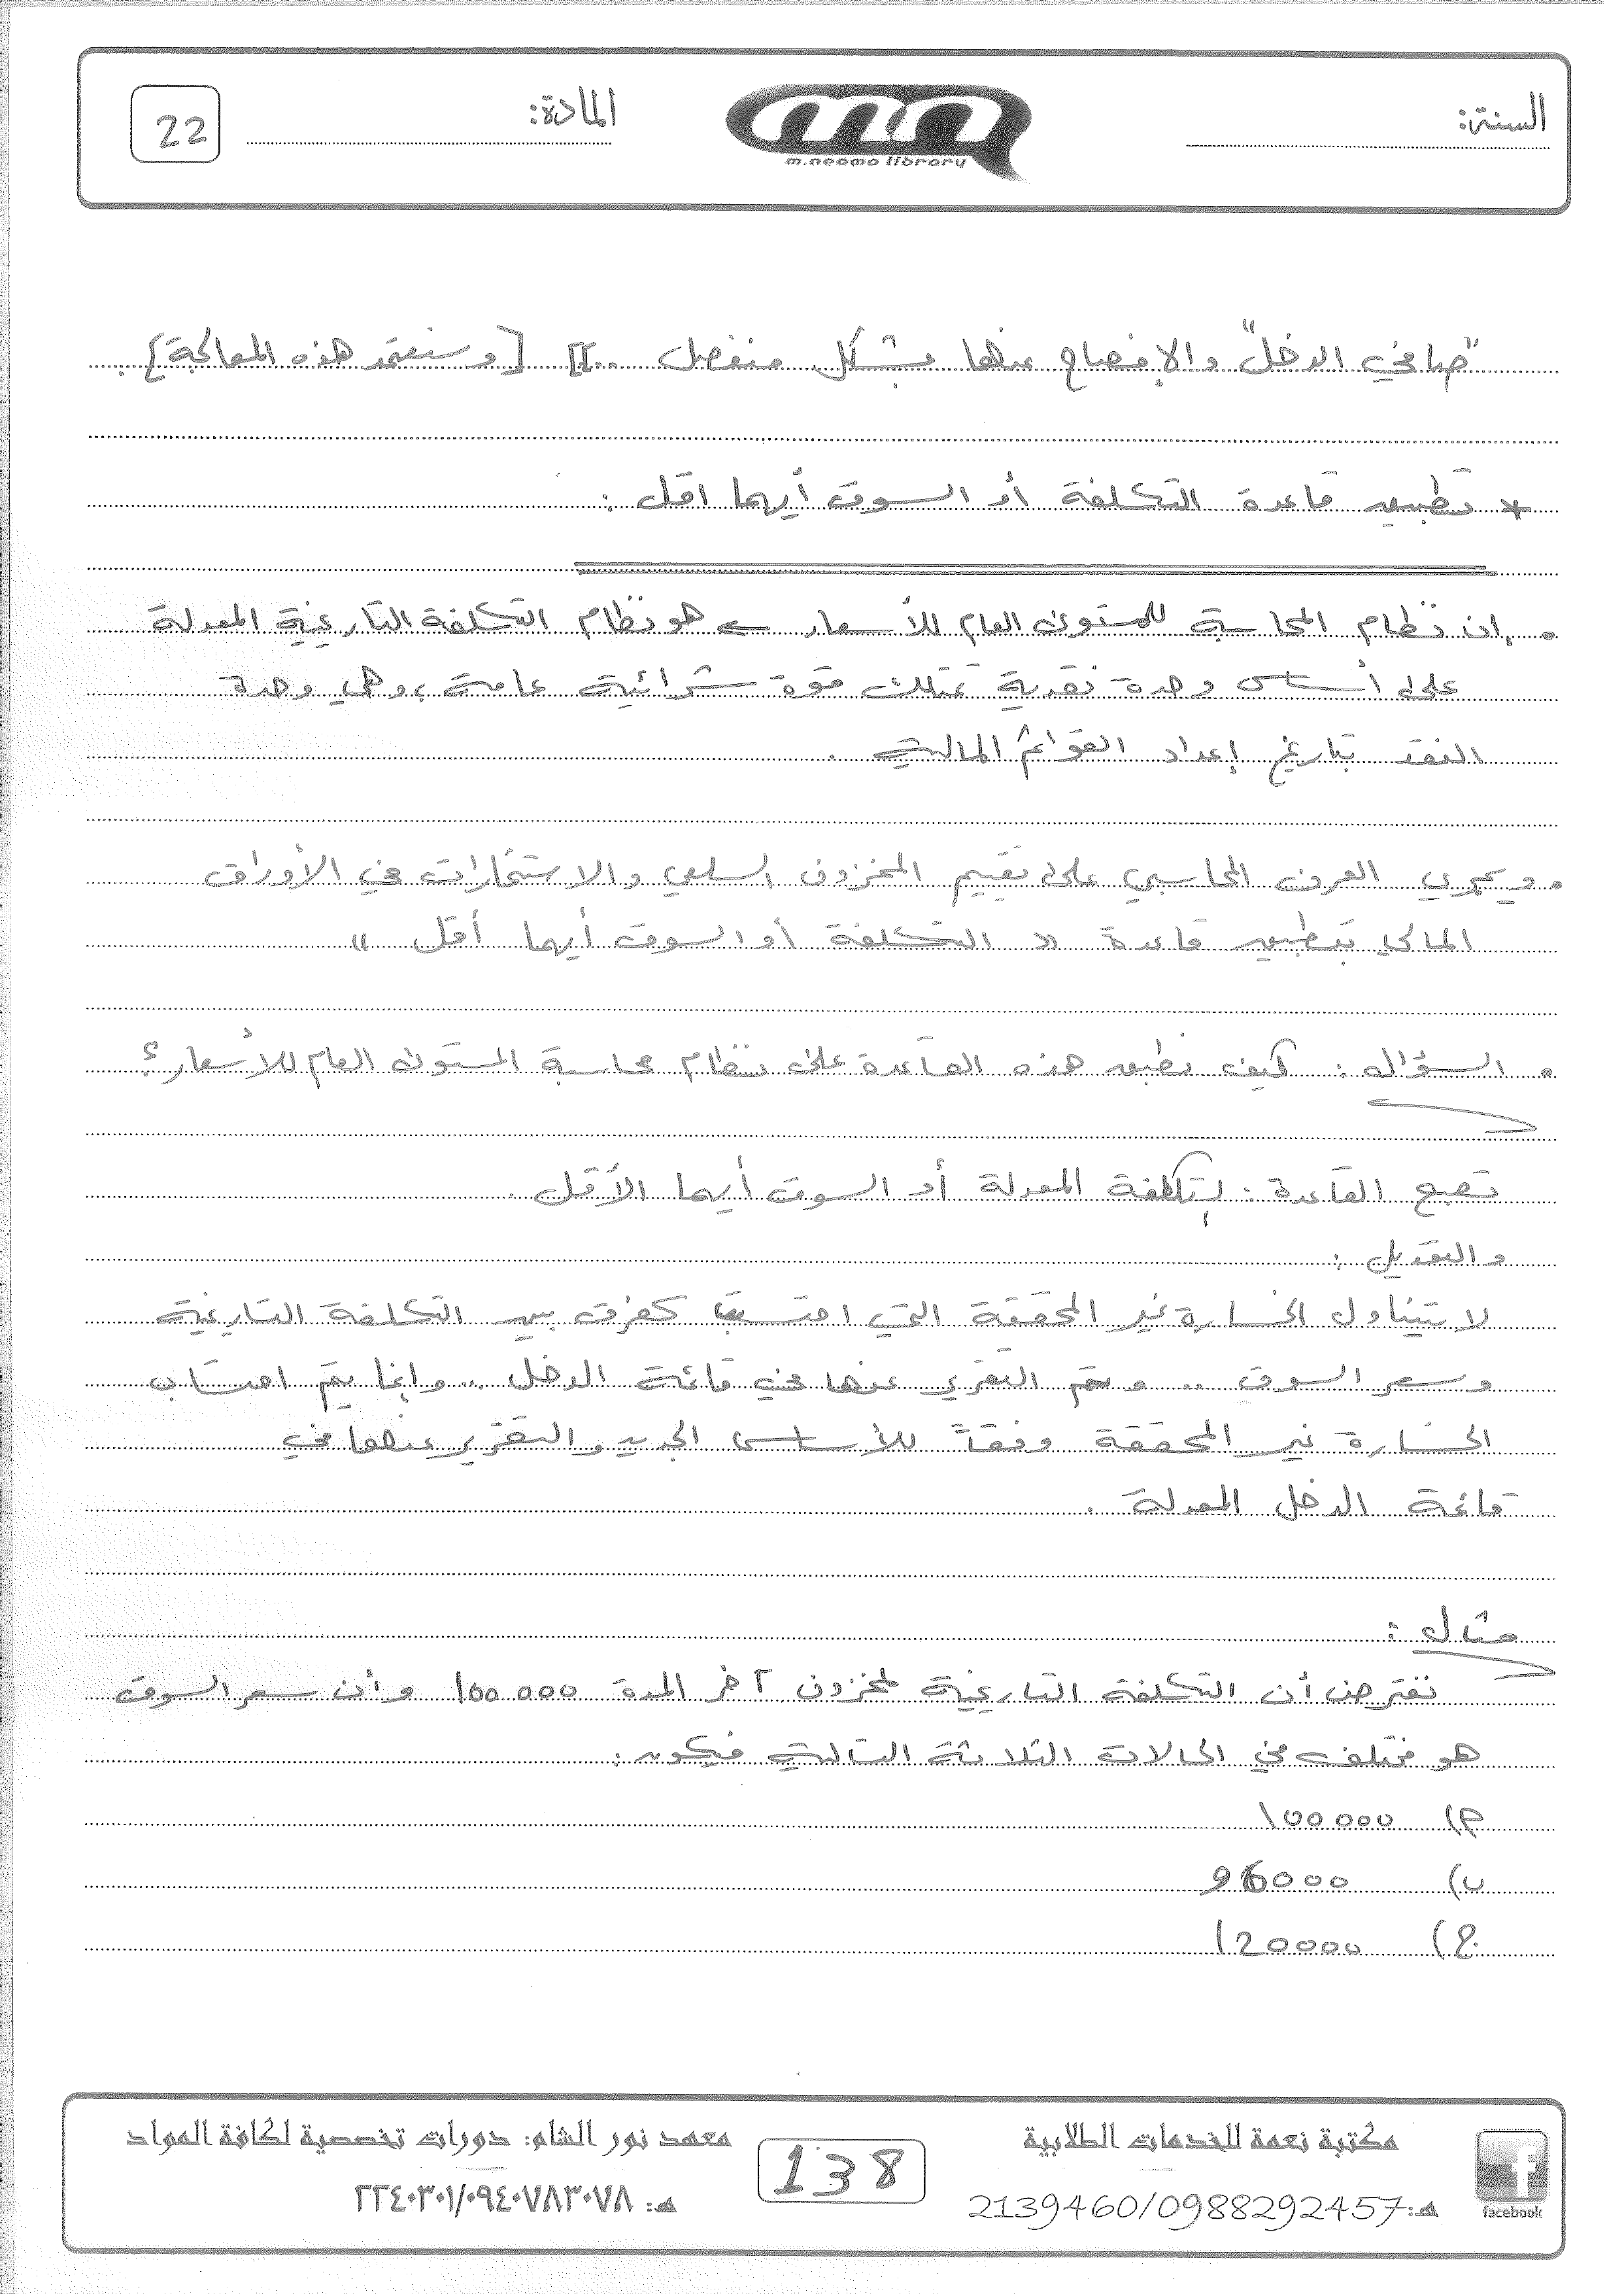 السنة:
m.neama library
المادة:
22
"صافي الدخل" والإفصاح عنها بشكل منفصل ..]] [وسنعتمد هذه المعالجة].
* تطبيق قاعدة التكلفة أو السوق أيهما اقل :
• إن نظام المحاسبة للمستوى العام للأسعار ← هو نظام التكلفة التاريخية المعدلة
على أساس وحدة نقدية تمتلك قوة شرائية عامة، وهي وحدة
النقد بتاريخ إعداد القوائم المالية .
• ويجري العرف المحاسبي على تقييم المخزون السلعي والاستثمارات في الأوراق
المالي بتطبيق قاعدة " التكلفة أو السوق أيهما أقل "
• السؤال : كيف نطبق هذه القاعدة على نظام محاسبة المستوى العام للأسعار؟
تصبح القاعدة : لتكلفة المعدلة أو السوق أيهما الأقل .
والتعديل :
لا يتناول الخسارة غير المحققة التي احتسبت كفرق بين التكلفة التاريخية
وسعر السوق .. وتم التقرير عنها في قائمة الدخل .. وإنما يتم احتساب
الخسارة غير المحققة وفقاً للأساس الجديد والتقرير عنها في
قائمة الدخل المعدلة .
مثال :
نفترض أن التكلفة التاريخية لمخزون آخر المدة 100000 وأن سعر السوق
هو مختلف في الحالات الثلاثة التالية فيكون :
م) 100000
ب) 96000
ج) 120000
مكتبة نعمة للخدمات الطلابية
هـ:2139460/0988292457
facebook
138
معهد نور الشام: دورات تخصصية لكافة المواد
هـ: ٢٢٤٠٣٠١/٠٩٤٠٧٨٣٠٧٨